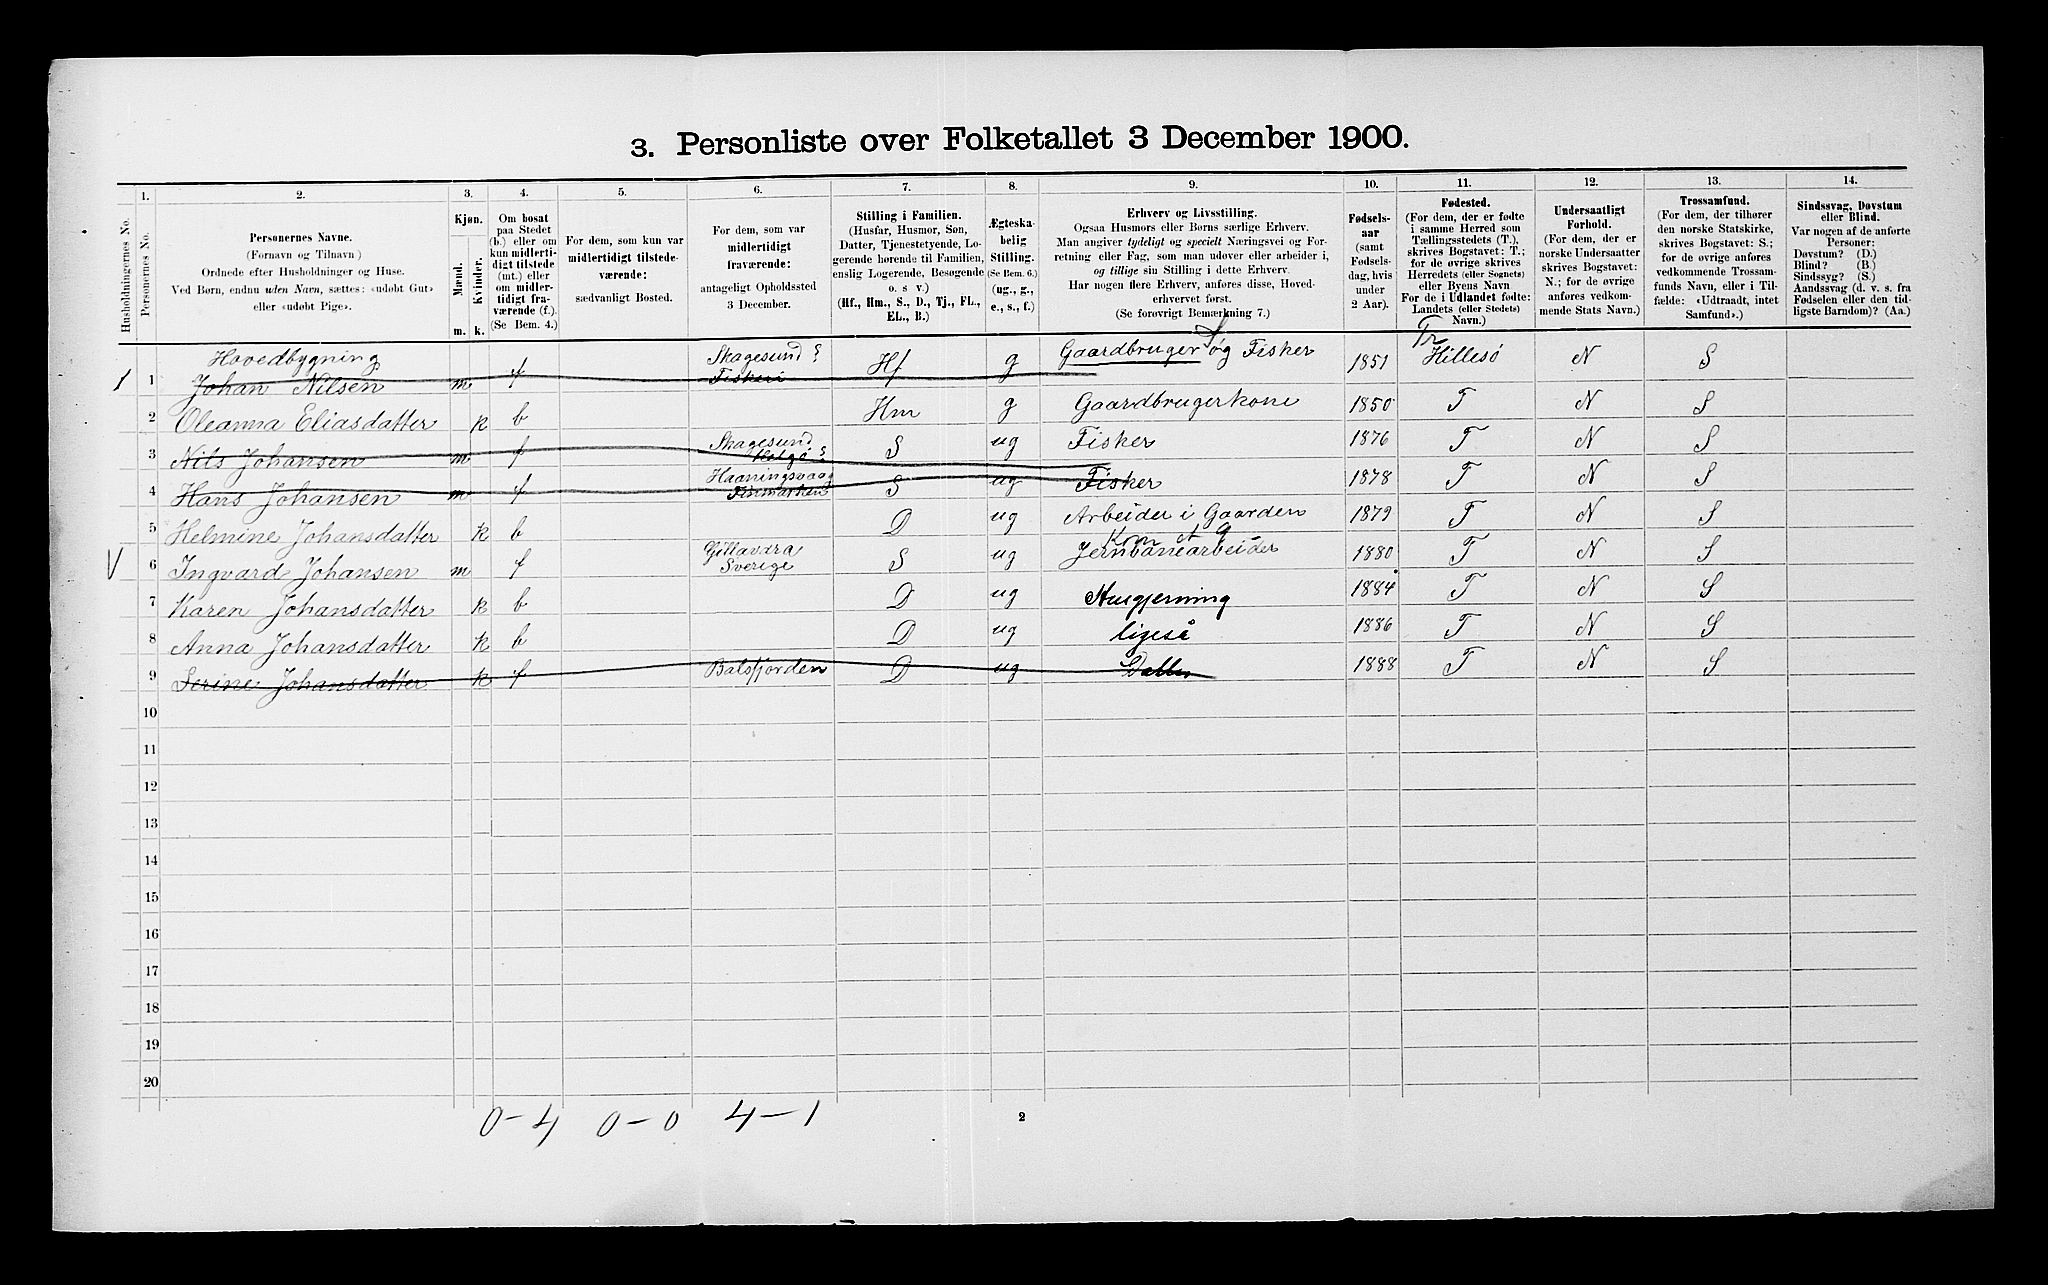 3. Personliste over Folketallet 3 December 1900.
Husholdningernes No.
1.
Personernes No.
2.
Personernes Navne.
(Fornavn og Tilnavn)
Ordnede efter Husholdninger og Huse.
Ved Børn, endnu uden Navn, sættes: «udøbt Gut»
eller «udøbt Pige».
3.
Kjøn.
Mænd.
Kvinder.
m. k.
4.
Om bosat
paa Stedet
(b.) eller om
kun midlerti-
digt tilstede
(mt.) eller
om midler-
tidigt fra-
værende (f.).
(Se Bem. 4.)
5.
For dem, som kun var
midlertidigt tilstede-
værende:
sædvanligt Bosted.
6.
For dem, som var
midlertidigt
fraværende:
antageligt Opholdssted
3 December.
7.
Stilling i Familien.
(Husfar, Husmor, Søn,
Datter, Tjenestetyende, Lo-
gerende hørende til Familien,
enslig Logerende, Besøgende
o. s. v.)
(Hf., Hm., S., D., Tj., FL.,
EL., B.)
8.
Ægteska-
belig
Stilling.
(Se Bem. 6.)
(ug., g.,
e., s., f.)
9.
Erhverv og Livsstilling.
Ogsaa Husmors eller Børns særlige Erhverv.
Man angiver tydeligt og specielt Næringsvei og For-
retning eller Fag, som man udøver eller arbeider i,
og tillige sin Stilling i dette Erhverv.
Har nogen flere Erhverv, anføres disse, Hoved-
erhvervet først.
(Se forøvrigt Bemærkning 7.)
10.
Fødsels-
aar
(samt
Fødsels-
dag, hvis
under
2 Aar).
11.
Fødested.
(For dem, der er fødte
i samme Herred som
Tællingsstedets (T.),
skrives Bogstavet: T.;
for de øvrige skrives
Herredets (eller Sognets)
eller Byens Navn
For de i Udlandet fødte:
Landets (eller Stedets)
Navn.)
12.
Undersaatligt
Forhold.
(For dem, der er
norske Undersaatter
skrives Bogstavet:
N.; for de øvrige
anføres vedkom-
mende Stats Navn.)
13.
Trossamfund.
(For dem, der tilhører
den norske Statskirke,
skrives Bogstavet: S.;
for de øvrige anføres
vedkommende Trossam-
funds Navn, eller i Til-
fælde: «Udtraadt, intet
Samfund».)
14.
Sindssvag, Døvstum
eller Blind.
Var nogen af de anførte
Personer:
Døvstum? (D.)
Blind? (B.)
Sindssyg? (S.)
Aandssvag (d. v. s. fra
Fødselen eller den tid-
ligste Barndom)? (Aa.)
Hovedbygning
1 1 Johan Nilsen m f Skagesund Fiskeri Hf g Gaardbruger og Fisker 1851 Tr Hillesø N S
2 Oleanna Eliasdatter k b Hm g Gaardbrugerkone 1850 T N S
3 Nils Johansen m f Skagesund S ug Fisker 1876 T N S
4 Hans Johansen m f Haaningsvaag Finmarken S ug Fisker 1878 T N S
5 Helmine Johansdatter k b D ug Arbeider i Gaarden 1879 T N S
V 6 Ingvard Johansen m f Gillavara Sverige S ug Jernbanearbeider 1880 T N S
7 Karen Johansdatter k b D ug Husgjerning 1884 T N S
8 Anna Johansdatter k b D ug ligeså 1886 T N S
9 Serine Johansdatter k f Balsfjorden D ug 1888 T N S
10
11
12
13
14
15
16
17
18
19
20
0-4 0-0 4-1
2